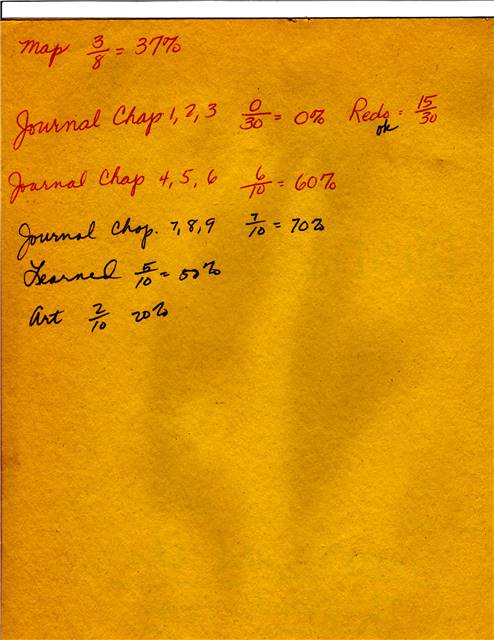 Map 3/8 = 37%
Journal Chap 1, 2, 3 0/30 = 0% Redo = 15/30
ok
Journal Chap 4, 5, 6 6/10 = 60%
Journal Chap. 7, 8, 9 7/10 = 70%
Learned 5/10 = 50%
Art 2/10 20%